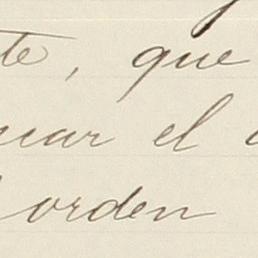 te, que
car el
orden